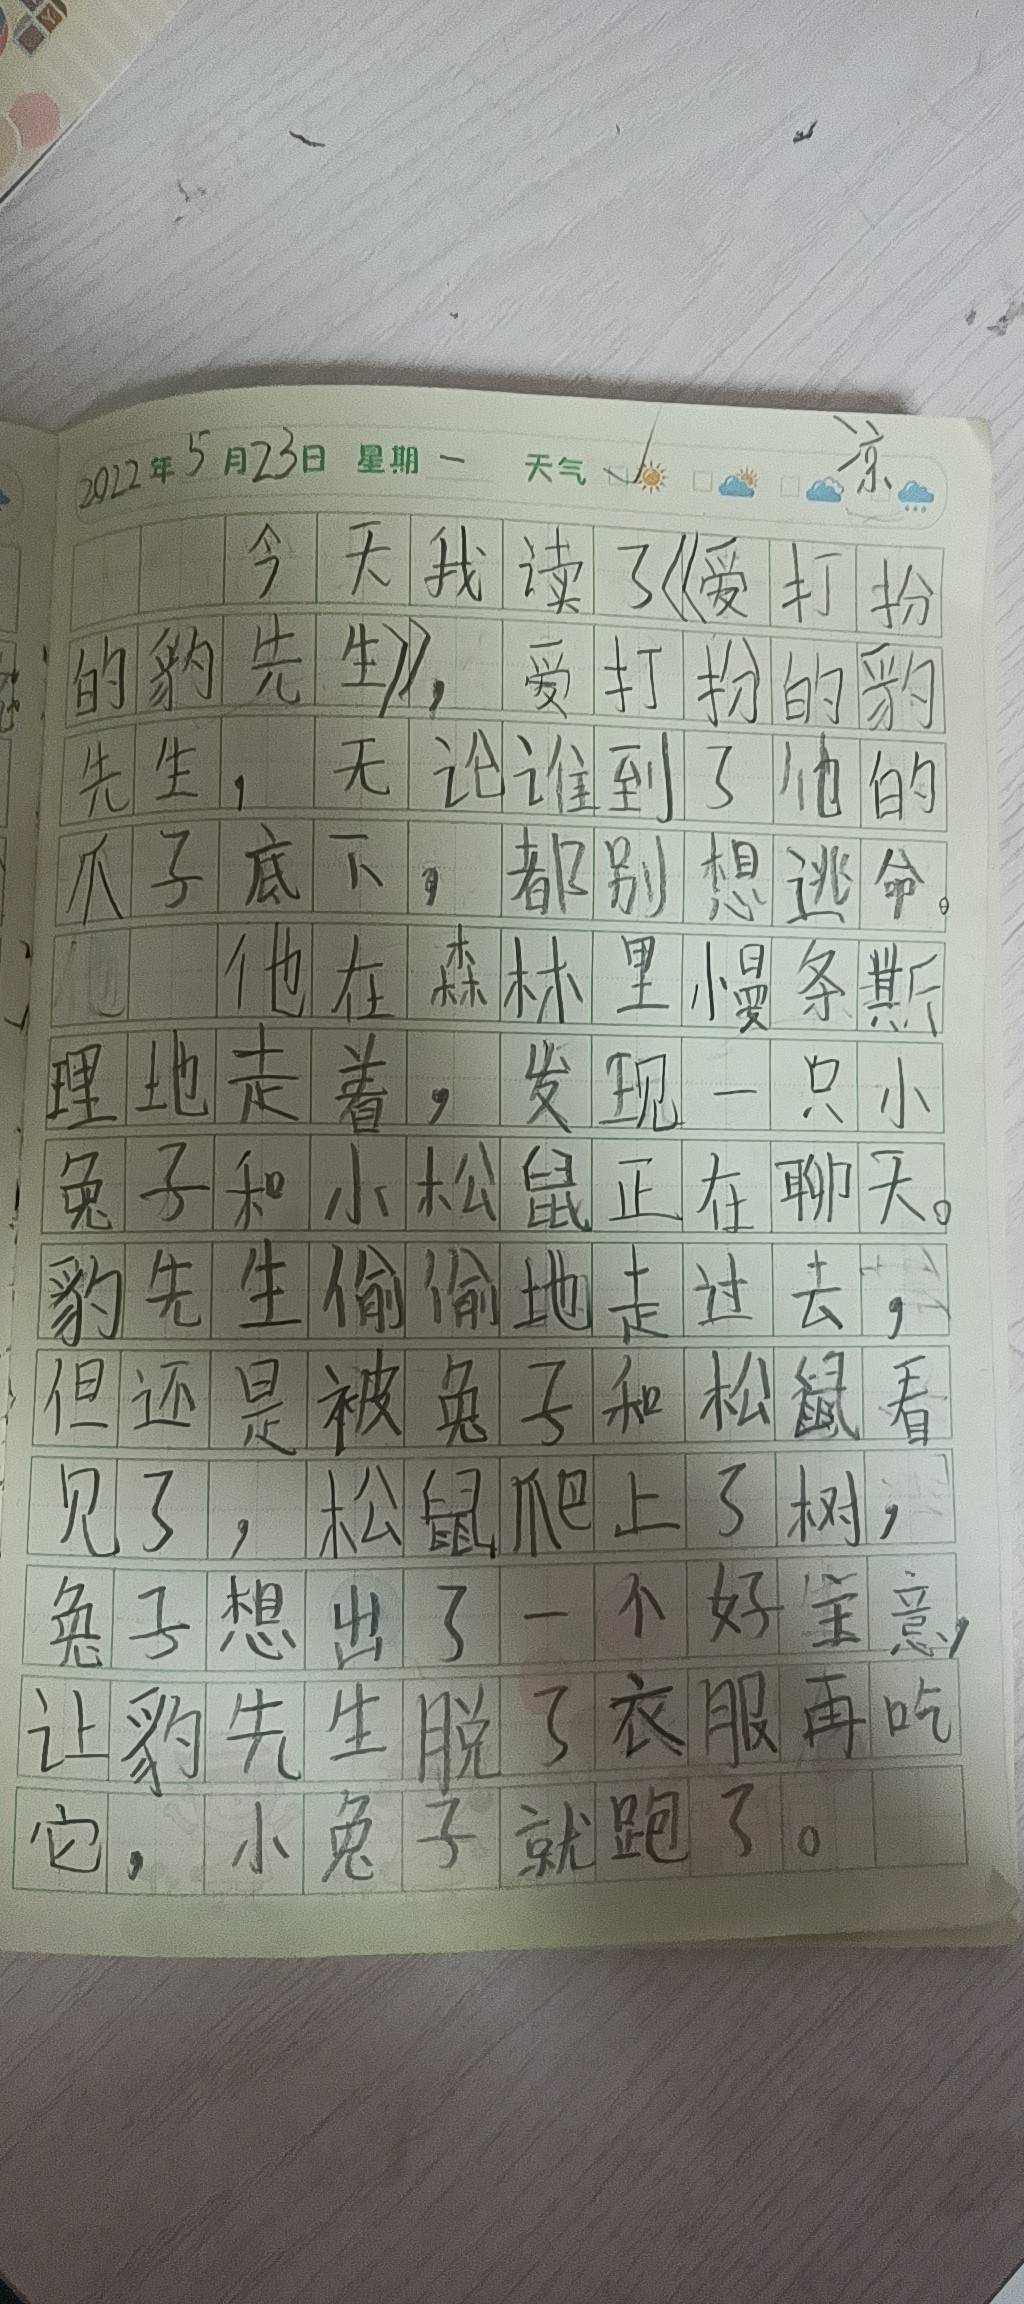 2022年5月23日 星期一 天气 凉
今天我读了《爱打扮
的豹先生》，爱打扮的豹
先生，无论谁到了他的
爪子底下，都别想逃命。
他在森林里慢条斯
理地走着，发现一只小
兔子和小松鼠正在聊天。
豹先生偷偷地走过去，
但还是被兔子和松鼠看
见了，松鼠爬上了树，
兔子想出了一个好主意，
让豹先生脱了衣服再吃
它，小兔子就跑了。